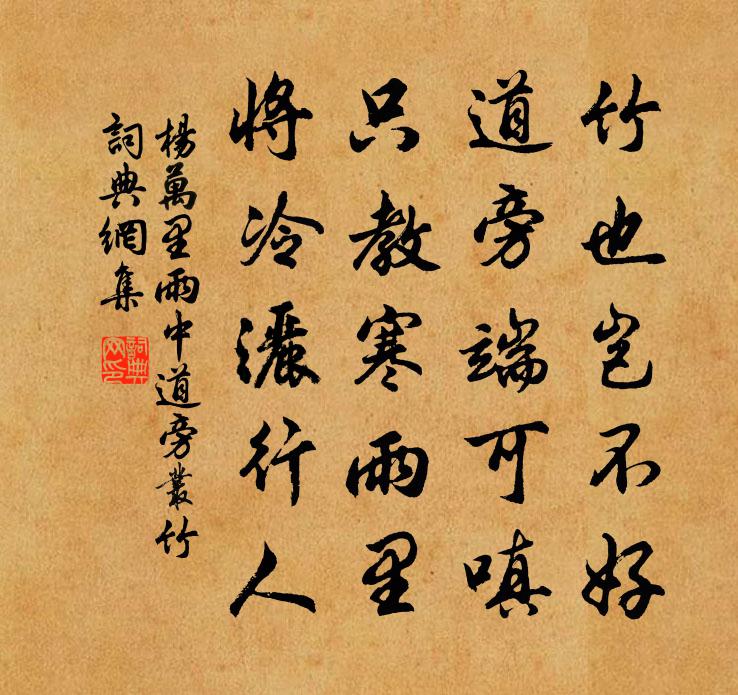 竹也岂不好
道旁端可嗔
只教寒雨里
將冷灑行人
楊萬里雨中道旁叢竹
詞典網集
詞典網印